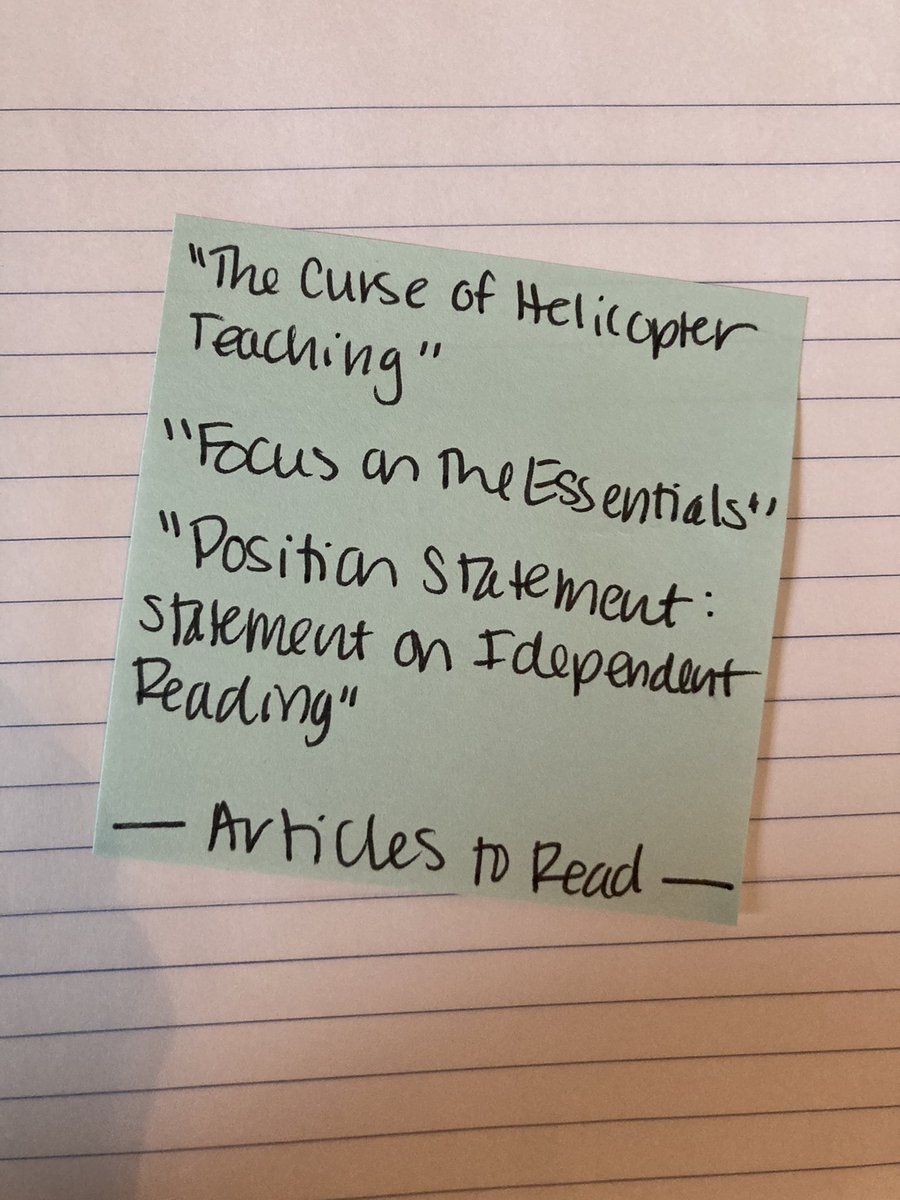 "The Curse of Helicopter
Teaching"
"Focus on The Essentials"
"Position Statement:
Statement on Idependent
Reading"
— Articles to Read —